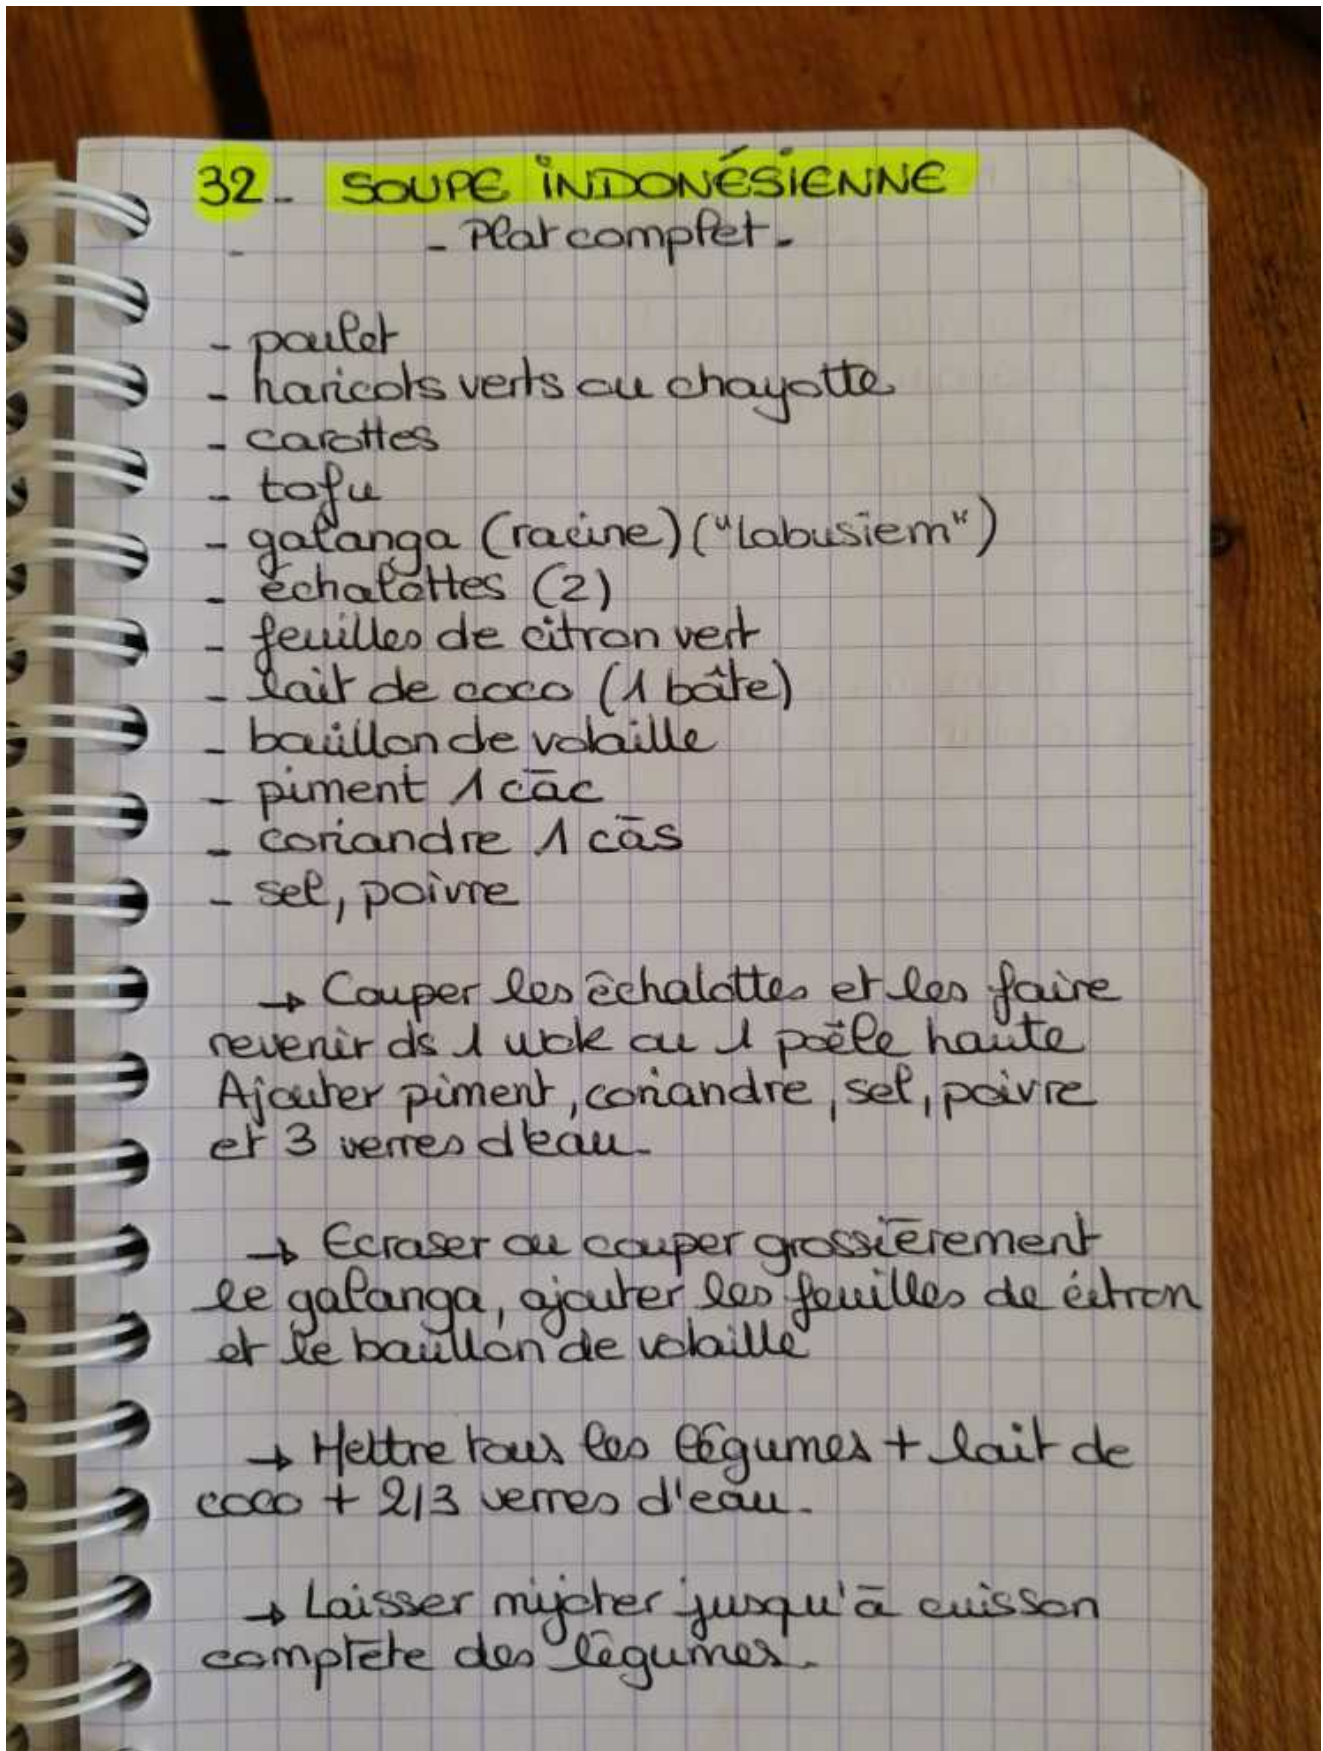 32- SOUPE INDONÉSIENNE
- Plat complet -
- poulet
- haricots verts ou chayotte
- carottes
- tofu
- galanga (racine) ("Labusiem")
- échalottes (2)
- feuilles de citron vert
- lait de coco (1 boîte)
- bouillon de volaille
- piment 1 càc
- coriandre 1 càs
- sel, poivre
→ Couper les échalottes et les faire
revenir ds 1 wok ou 1 poêle haute
Ajouter piment, coriandre, sel, poivre
et 3 verres d'eau.
→ Ecraser ou couper grossièrement
le galanga, ajouter les feuilles de citron
et le bouillon de volaille
→ Mettre tous les légumes + lait de
coco + 2/3 verres d'eau.
→ Laisser mijoter jusqu'à cuisson
complète des légumes.